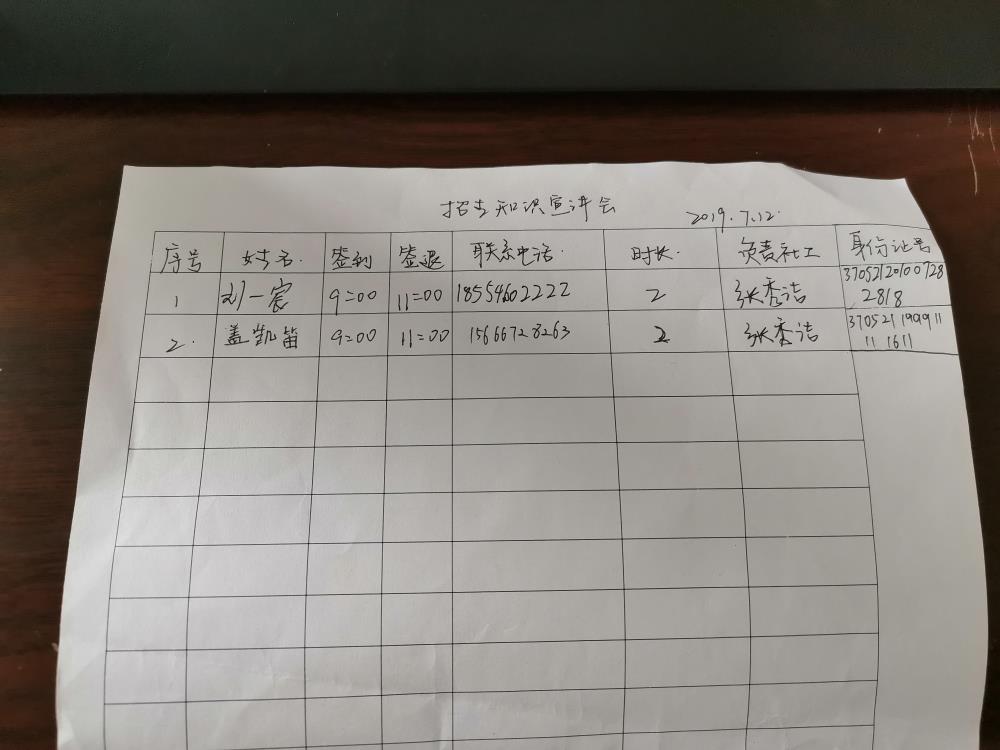 招生知识宣讲会 2019.7.12.
序号 姓名. 签到 签退 联系电话. 时长. 负责社工 身份证号
1 刘一宸 9=00 11=00 18554602222 2 张秀洁 370521201007282818
2. 盖凯笛 9=00 11=00 15666728263 2 张秀洁 370521199911111611